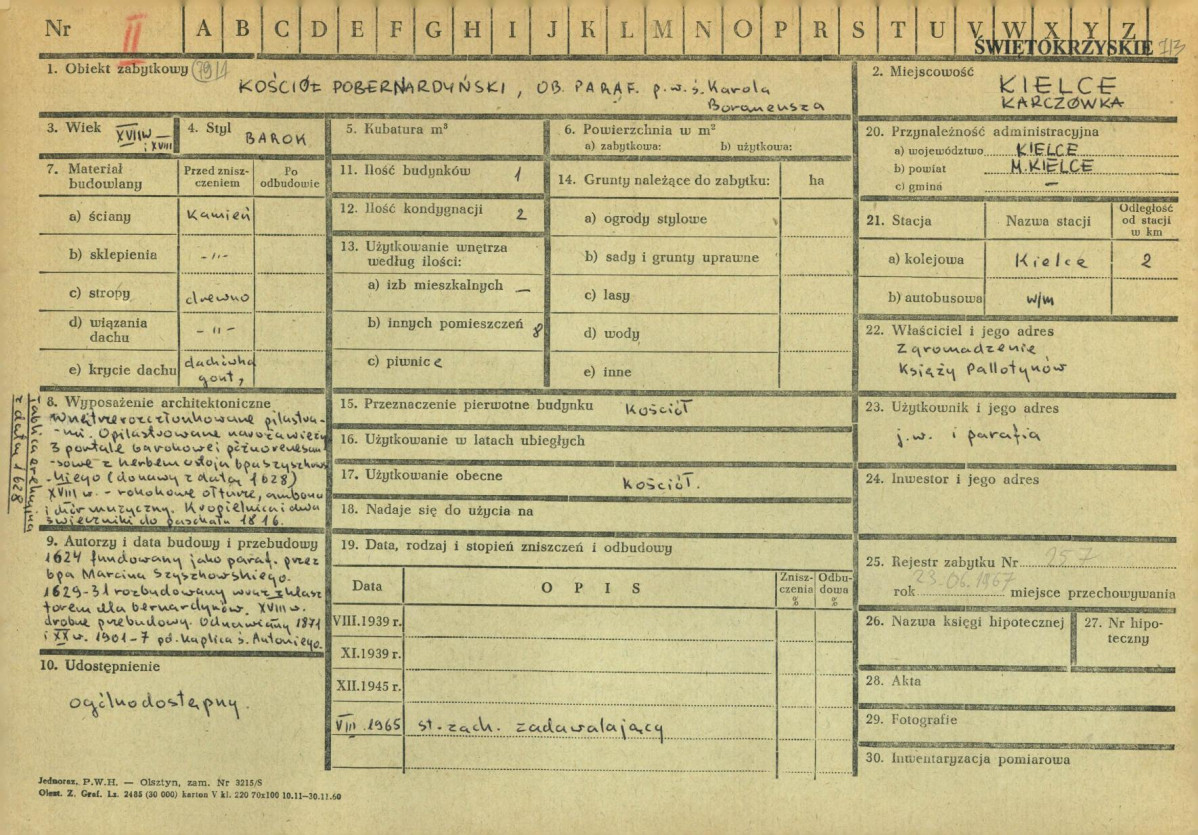 Nr II A B C D E F G H I J K L M N O P R S T U V W X Y Z
ŚWIĘTOKRZYSKIE 713
1. Obiekt zabytkowy
KOŚCIÓŁ POBERNARDYŃSKI, OB. PARAF. p.w. ś. Karola
Boromeusza
2. Miejscowość
KIELCE
KARCZÓWKA
3. Wiek XVII w — i XVIII
4. Styl BAROK
5. Kubatura m³
6. Powierzchnia w m²
a) zabytkowa: b) użytkowa:
20. Przynależność administracyjna
a) województwo KIELCE
b) powiat M. KIELCE
c) gmina —
7. Materiał budowlany
Przed zniszczeniem
Po odbudowie
a) ściany Kamień
b) sklepienia -"-
c) stropy drewno
d) wiązania dachu -"-
e) krycie dachu dachówka gont,
11. Ilość budynków 1
12. Ilość kondygnacji 2
13. Użytkowanie wnętrza
według ilości:
a) izb mieszkalnych —
b) innych pomieszczeń 8
c) piwnic e
14. Grunty należące do zabytku: ha
a) ogrody stylowe
b) sady i grunty uprawne
c) lasy
d) wody
e) inne
21. Stacja Nazwa stacji Odległość od stacji w km
a) kolejowa Kielce 2
b) autobusowa w/m
22. Właściciel i jego adres
Zgromadzenie
Księży Pallotynów
8. Wyposażenie architektoniczne
Wnętrze rozczłonkowane pilastra-
-mi. Opilastrowane naroża wieży
3 portale barokowe i późnorenesan
-sowe z herbem ostoja bpa szyszkows
-kiego (donawy z datą 1628)
XVIII w. - rokokowe ołtarze, ambona
i chór muzyczny. Kropielnica i dwa
świeczniki do paschału 1816.
Tablica erekcyjna
z datą 1628
15. Przeznaczenie pierwotne budynku Kościół
16. Użytkowanie w latach ubiegłych
17. Użytkowanie obecne Kościół.
18. Nadaje się do użycia na
23. Użytkownik i jego adres
j.w. i parafia
24. Inwestor i jego adres
9. Autorzy i data budowy i przebudowy
1624 fundowany jako paraf. przez
bpa Marcina Szyszkowskiego.
1629-31 rozbudowany wraz z klasz
torem dla bernardynów. XVIII w.
drobne przebudowy. Odnawiany 1871
i XX w. 1901-7 pd. Kaplica ś. Antoniego.
19. Data, rodzaj i stopień zniszczeń i odbudowy
Data OPIS Zniszczenia % Odbudowa %
VIII.1939 r.
XI.1939 r.
XII.1945 r.
VIII.1965 st. zach. zadawalający
25. Rejestr zabytku Nr 257
rok 23.06.1967 miejsce przechowywania
26. Nazwa księgi hipotecznej
27. Nr hipoteczny
28. Akta
29. Fotografie
30. Inwentaryzacja pomiarowa
10. Udostępnienie
ogólnodostępny.
Jednoraz. P.W.H. — Olsztyn, zam. Nr 3215/S
Olszt. Z. Graf. Lz. 2485 (30 000) karton V kl. 220 70x100 10.11—30.11.60